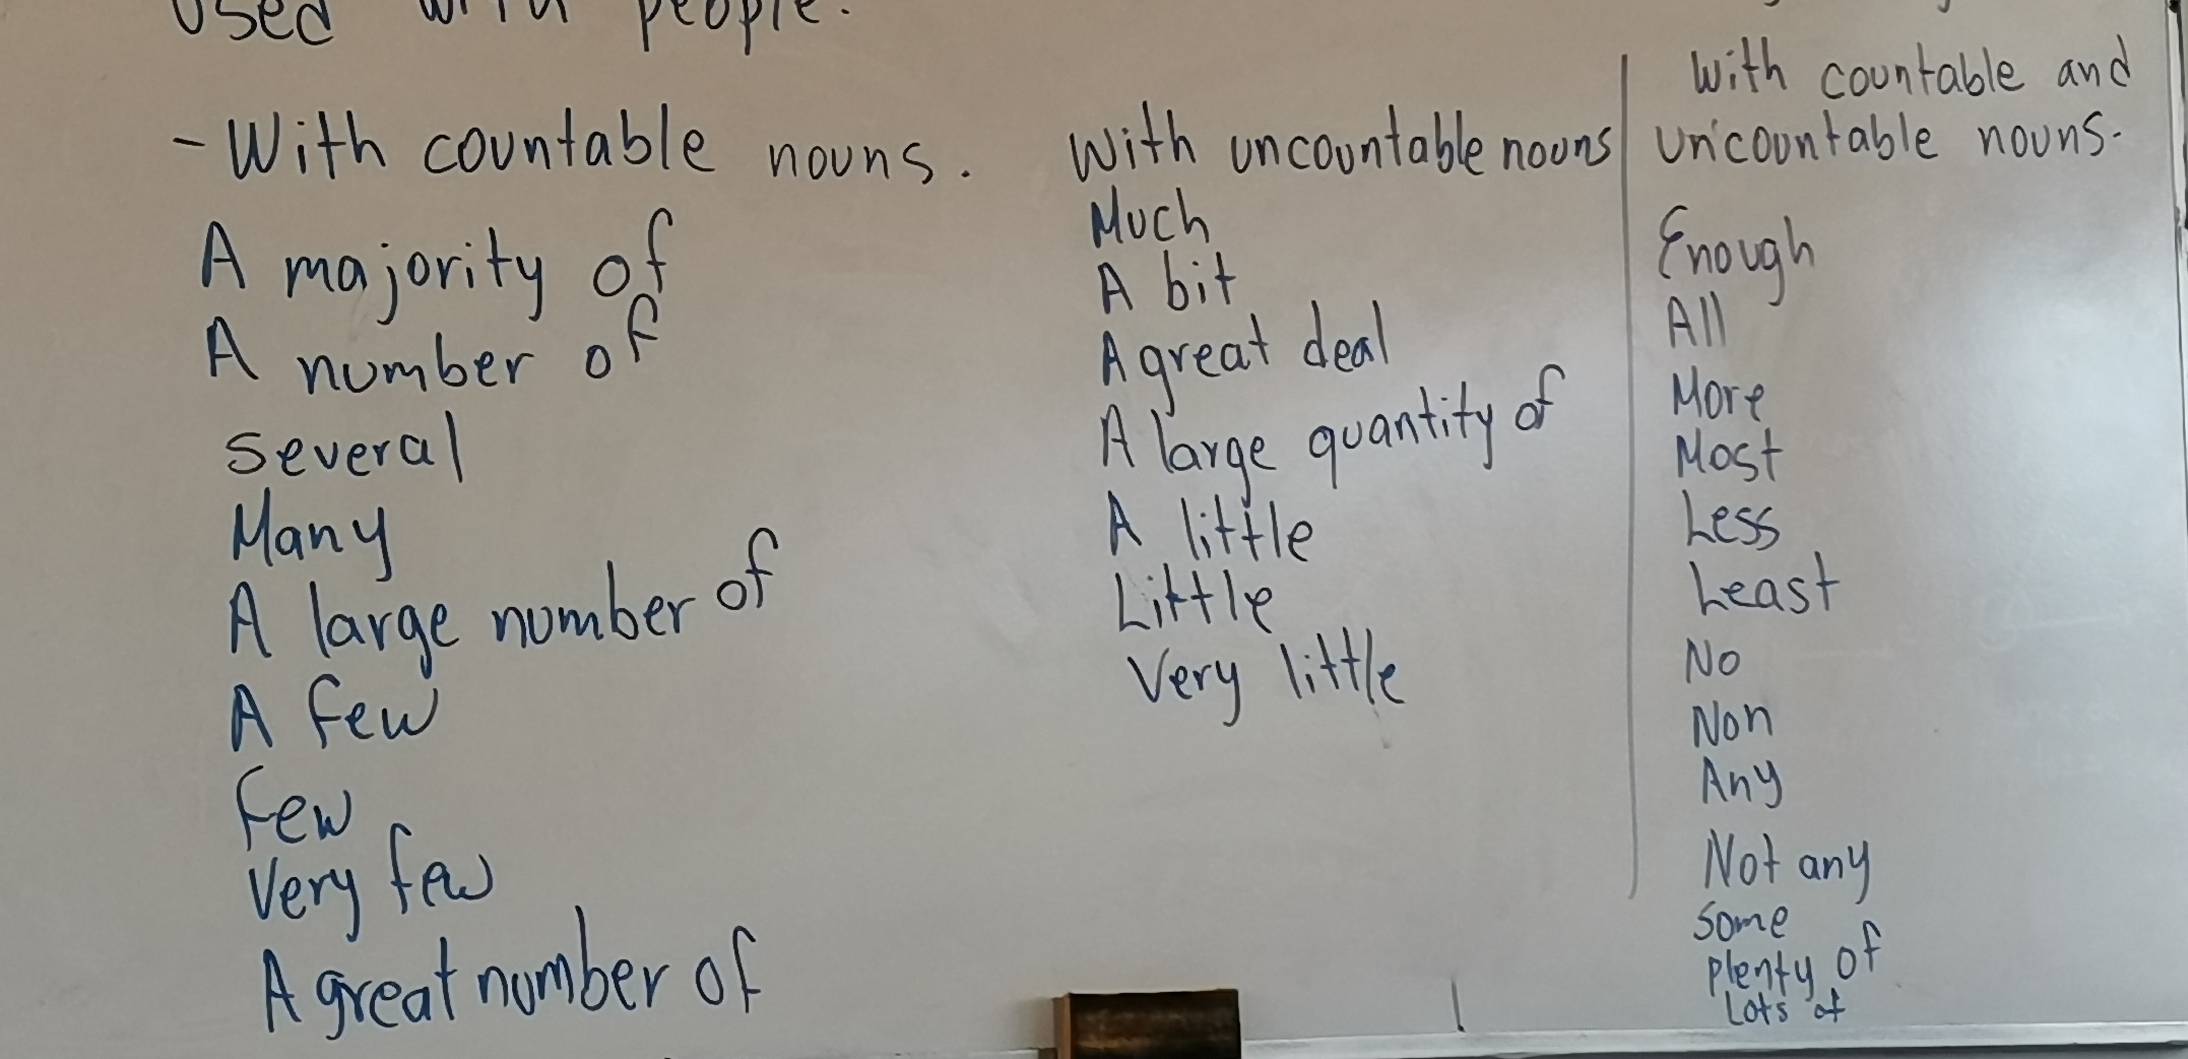 Used with people.
- With countable nouns.
A majority of
A number of
Several
Many
A large number of
A few
Few
Very few
A great number of
With uncountable nouns
Much
A bit
A great deal
A large quantity of
A little
Little
Very little
With countable and
uncountable nouns.
Enough
All
More
Most
Less
Least
No
Non
Any
Not any
Some
plenty of
Lots of